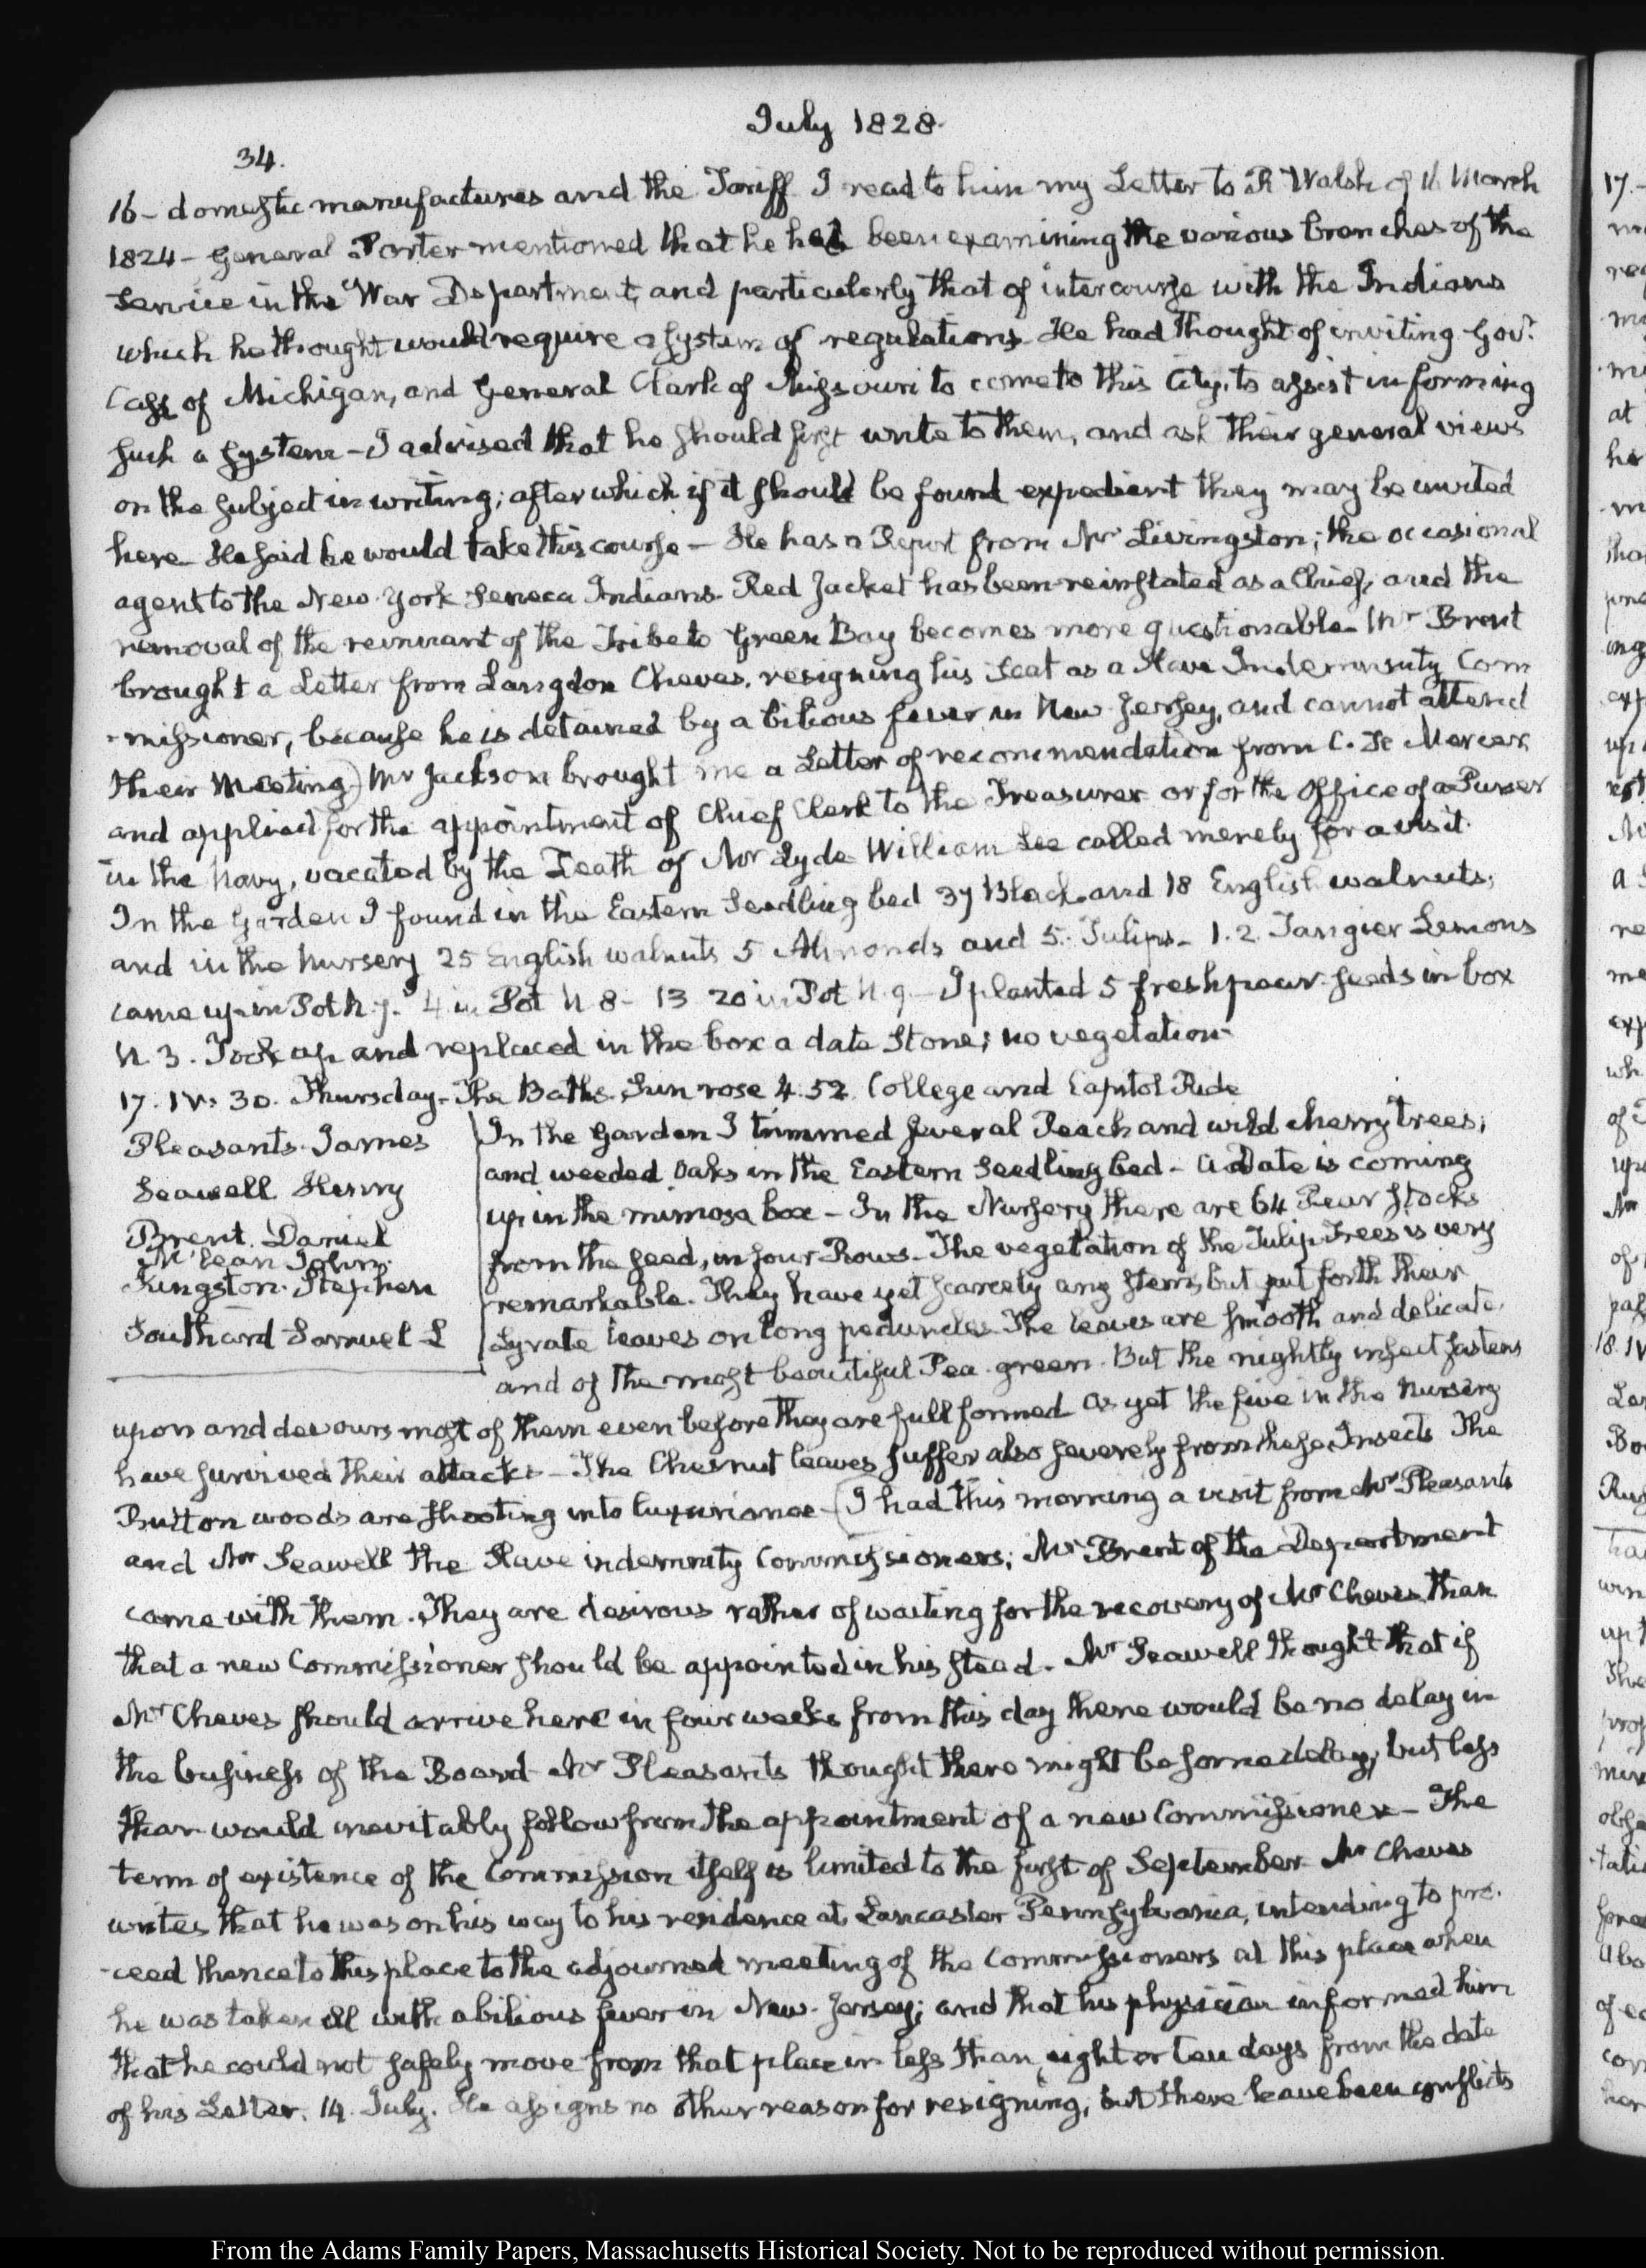 July 1828.
34.
16 - domestic manufactures and the Tariff I read to him my Letter to R Walsh of 16 March
1824 - General Porter mentioned that he had been examining the various branches of the
Service in the War Department, and particularly that of intercourse with the Indians
which he thought would require a system of regulations. He had thought of inviting Govr.
Cass of Michigan, and General Clark of Missouri to come to this City, to assist in forming
such a system - I advised that he should first write to them, and ask their general views
on the subject in writing; after which if it should be found expedient they may be invited
here. He said he would take this course - He has a Report from Mr Livingston; the occasional
agent to the New-York Seneca Indians. Red Jacket has been reinstated as a Chief; and the
removal of the remnant of the Tribe to Green Bay becomes more questionable. Mr Brent
brought a Letter from Langdon Cheves, resigning his Seat as a Slave Indemnity Com
-missioner, because he is detained by a bilious fever in New-Jersey, and cannot attend
their Meeting) Mr Jackson brought me a Letter of recommendation from C. F. Mercer,
and applied for the appointment of Chief Clerk to the Treasurer or for the Office of a Purser
in the Navy, vacated by the Death of Mr Lyde William Lee called merely for a visit.
In the Garden I found in the Eastern Seedling bed 37 Black and 18 English walnuts;
and in the Nursery 25 English walnuts 5 Almonds and 5. Tulips - 1. 2. Tangier Lemons
came up in Pot N. 7. 4 in Pot N 8 - 13 20 in Pot N. 9 - I planted 5 fresh pear-seeds in box
N. 3. Took up and replaced in the box a date Stone; no vegetation.
17. IV. 30. Thursday - The Baths. Sun rose 4. 52. College and Capitol Ride
Pleasants. James
Seawell Henry
Brent. Daniel
McLean John.
Kingston. Stephen
Southard Samuel L
In the Garden I trimmed several Peach and wild cherry trees;
and weeded Oaks in the Eastern Seedling bed - A Date is coming
up in the mimosa box - In the Nursery there are 64 Pear stocks
from the seed, in four Rows - The vegetation of the Tulip-Trees is very
remarkable. They have yet scarcely any stems, but put forth their
Lyrate leaves on long peduncles. The leaves are smooth and delicate,
and of the most beautiful Pea-green. But the nightly insect fastens
upon and devours most of them even before they are full formed as yet the five in the Nursery
have survived their attacks - The Chesnut leaves suffer also severely from these Insects The
Button woods are shooting into luxuriance - (I had this morning a visit from Mr Pleasants
and Mr Seawell the Slave indemnity Commissioners; Mr Brent of the Department
came with them. They are desirous rather of waiting for the recovery of Mr Cheves than
that a new Commissioner should be appointed in his stead. Mr Seawell thought that if
Mr Cheves should arrive here in four weeks from this day there would be no delay in
the business of the Board Mr Pleasants thought there might be some delay, but less
than would inevitably follow from the appointment of a new Commissioner - The
term of existence of the Commission itself is limited to the first of September. Mr Cheves
writes that he was on his way to his residence at Lancaster Pennsylvania, intending to pro-
-ceed thence to this place to the adjourned meeting of the Commissioners at this place when
he was taken ill with a bilious fever in New-Jersey; and that his physician informed him
that he could not safely move from that place in less than eight or ten days from the date
of his Letter, 14. July. He assigns no other reason for resigning, but there have been conflicts
From the Adams Family Papers, Massachusetts Historical Society. Not to be reproduced without permission.